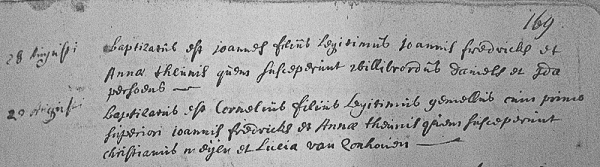 169
28 Augusti baptizatus est ioannes filius Legitimus Joannis fredricks et
Annæ theunis quem susceperunt willibrordus daniels et Ida
persoens
29 Augusti baptizatus est Cornelius filius Legitimus gemellus cum primo
superiori ioannis fredricks et Annæ theunis quem susceperunt
christianus et Lucia van Zonhoven